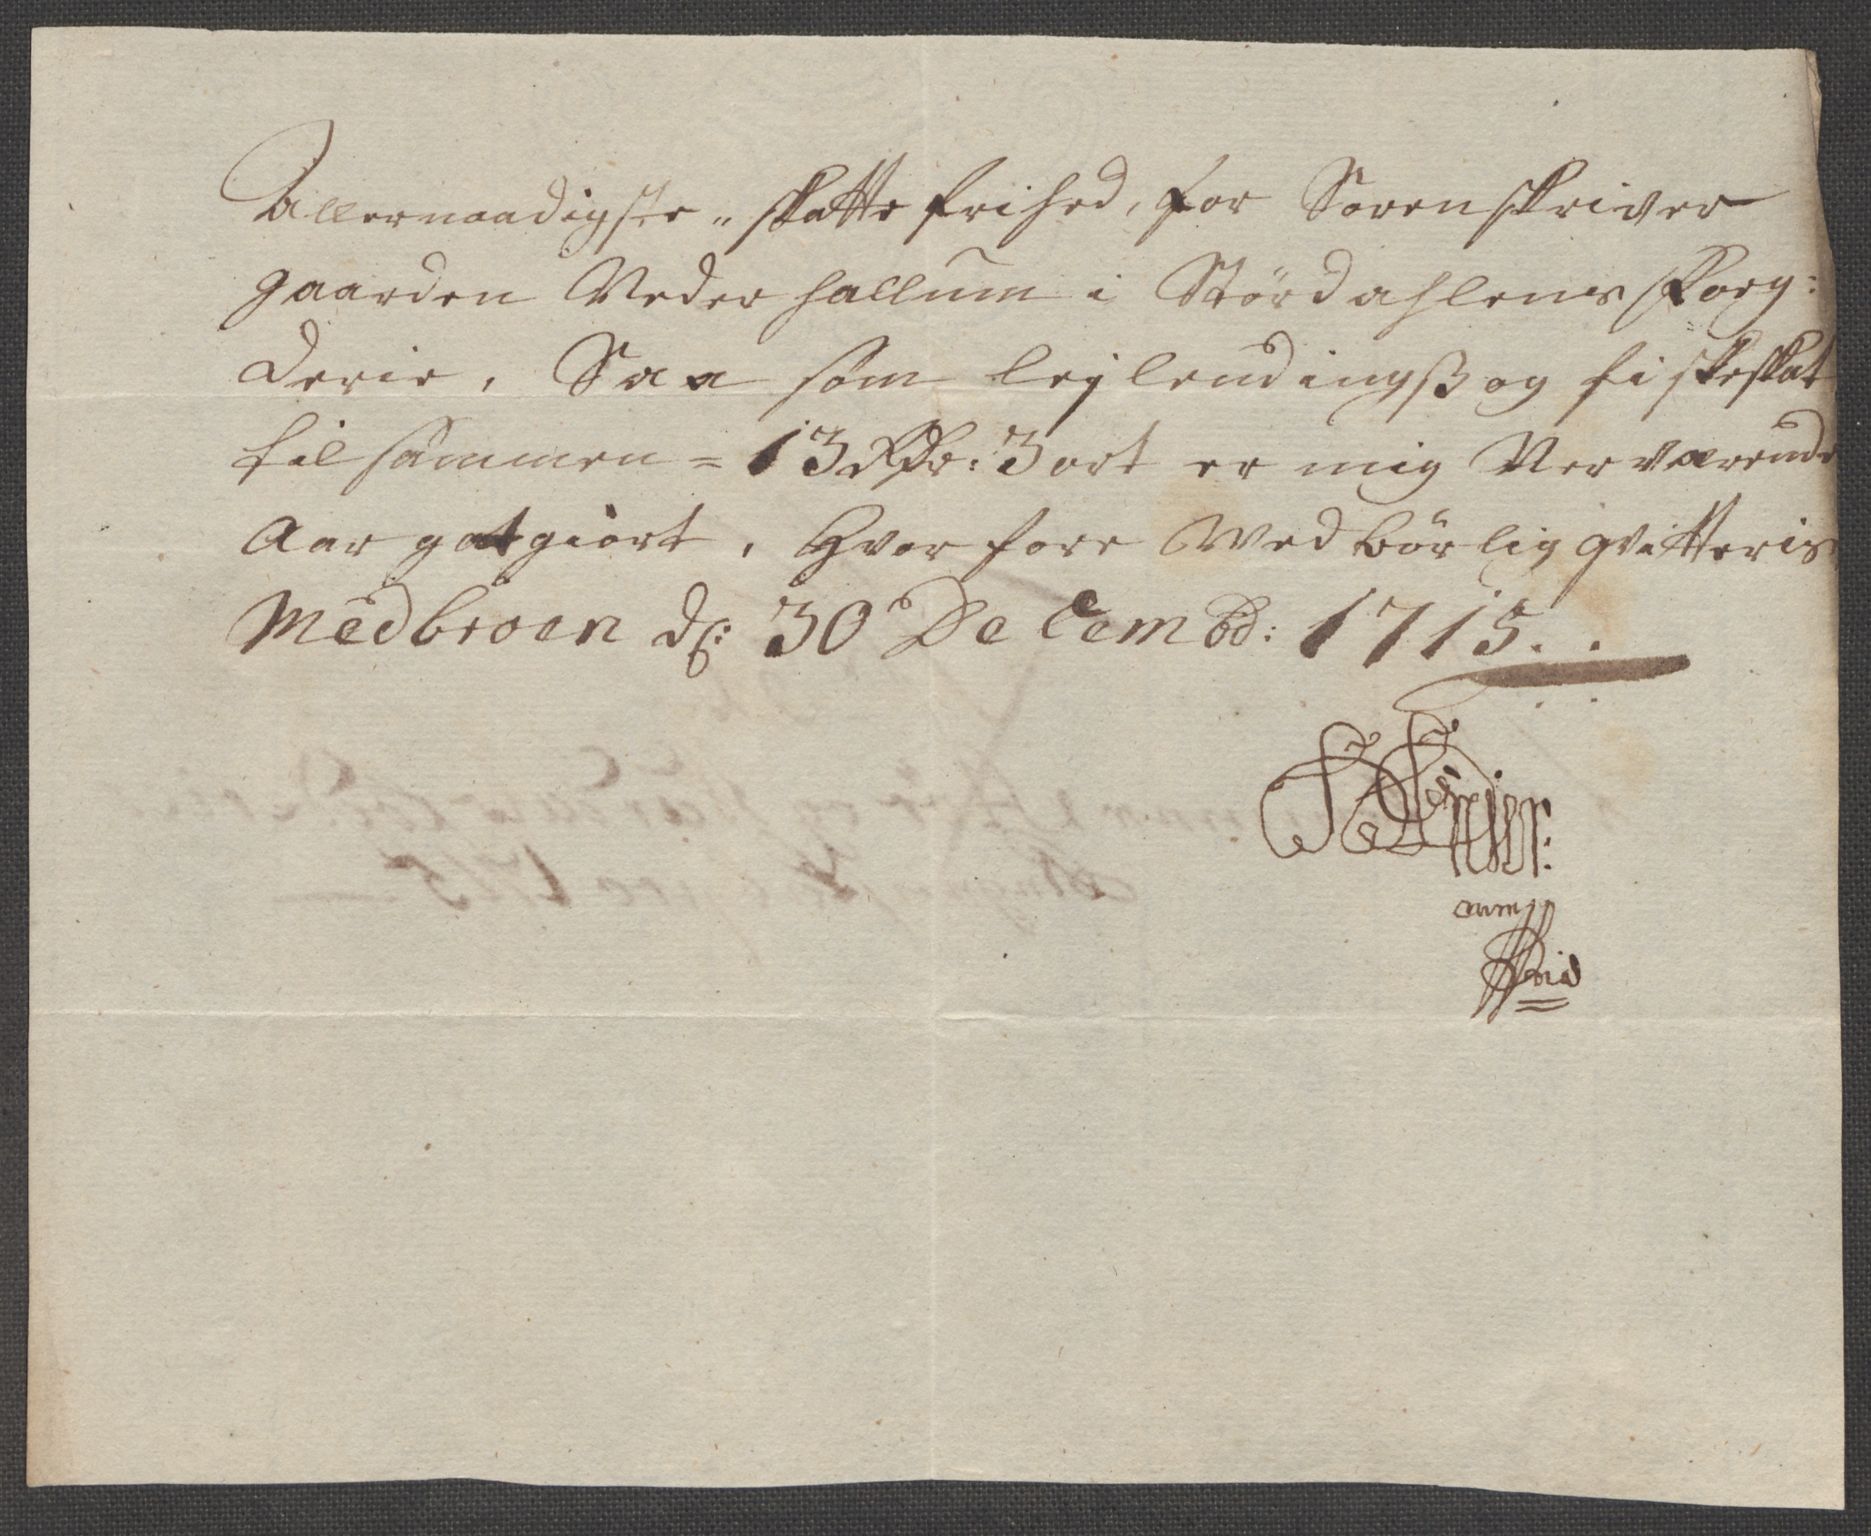 Allernaadigste skatte frihed, for Sorenskriver
gaarden Neder hallum i Stördahlens Foeg:
derie, Saa som leylendingß og fi skeskat
til sammen = 13 Rdr: 3 ort er mig Nerværende
Aar gotgiort, Hvor fore Med bör lig qvitteris
Medbroen d: 30 De Cembr: 1715..